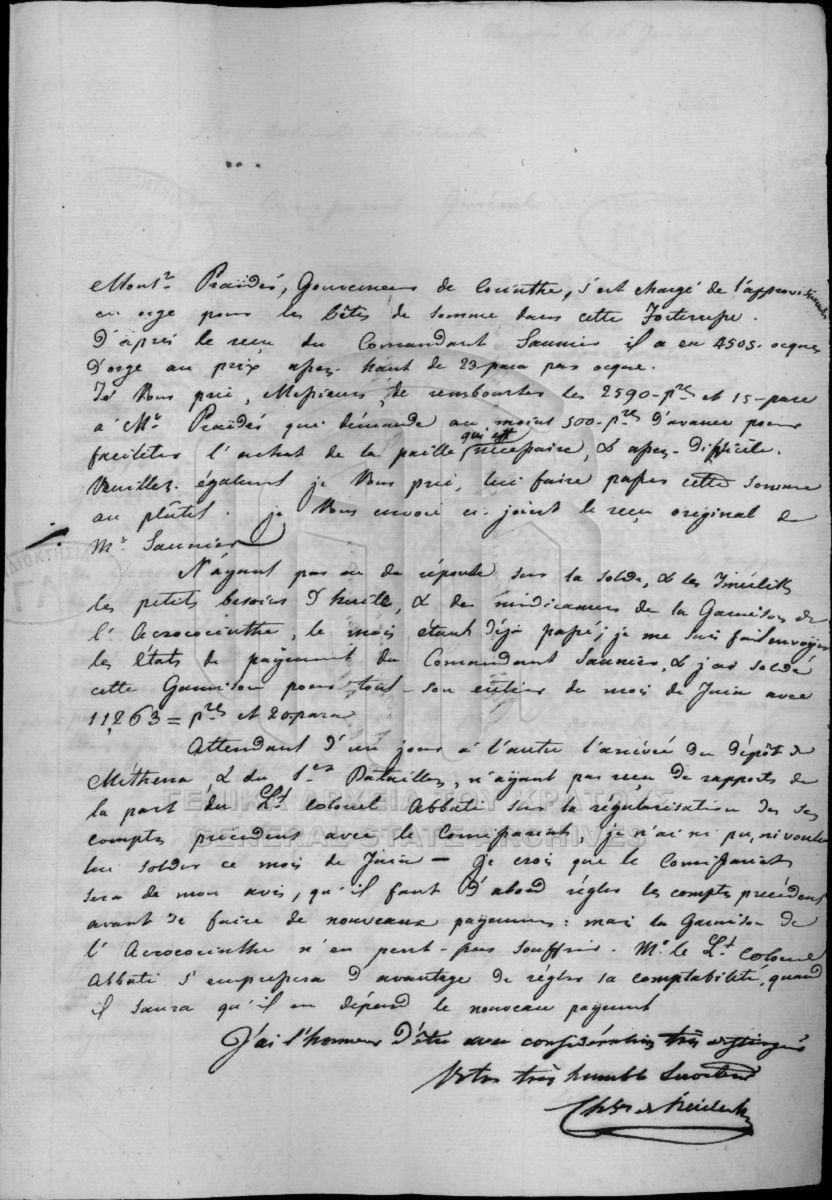 Monsr. Praïdès, Gouverneur de Corinthe, s'est chargé de l'approvisionnemt
en orge pour les bêtes de somme dans cette Forteresse.
D'après le reçu du Comandant Saunier il a eu 4505. ocques
d'orge au prix assez haut de 23 para par ocque.
Je Vous prie, Messieurs, de rembourser les 2590-pres et 15-para
à Mr. Praïdès qui démande au moins 500-pres d'avance pour
faciliter l'achat de la paille qui est nécessaire, & assez-difficile.
Veuillez-également je Vous prie, lui faire passer cette somme
au plutôt. je Vous envoie ci-joint le reçu original de
Mr. Saunier
N'ayant pas eu de réponse sur la solde, & les
les petits besoins d'huile, & des médicamens de la Garnison de
l'Acrocorinthe, le mois étant déjà passé; je me suis fait envoyer
les états de payement du Comandant Saunier, & j'ai soldé
cette Garnison pour tout-son entier du mois de Juin avec
11,263 = pres et 20.para
Attendant d'un jour à l'autre l'arrivée du dépôt de
Méthena & du 1er Bataillon, n'ayant pas reçu de rapports de
la part du Lt. Colonel Abbati sur la régularisation des ses
comptes précedens avec le Comissariat, je n'ai ni pu, ni voulu
lui solder ce mois de Juin — je crois que le Comissariat
sera de mon avis, qu'il faut d'abord régler les comptes precédens
avant de faire de nouveaux payemens: mais la Garnison de
l'Acrocorinthe n'en peut-pas souffrir. Mr. le Lt. Colonel
Abbati s'empressera d'avantage de régler sa comptabilité, quand
il saura qu'il en dépend le nouveau payement
J'ai l'honneur d'être avec considération très distinguée
Votre très humble Serviteur
de Heideck
ΓΕΝΙΚΑ ΑΡΧΕΙΑ ΤΟΥ ΚΡΑΤΟΥΣ
GENERAL STATE ARCHIVES